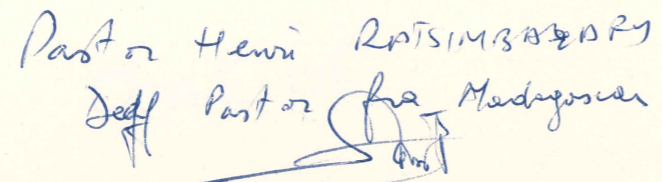 Pastor Henri RATSIMBAZAFY
Deaf Pastor from Madagascar